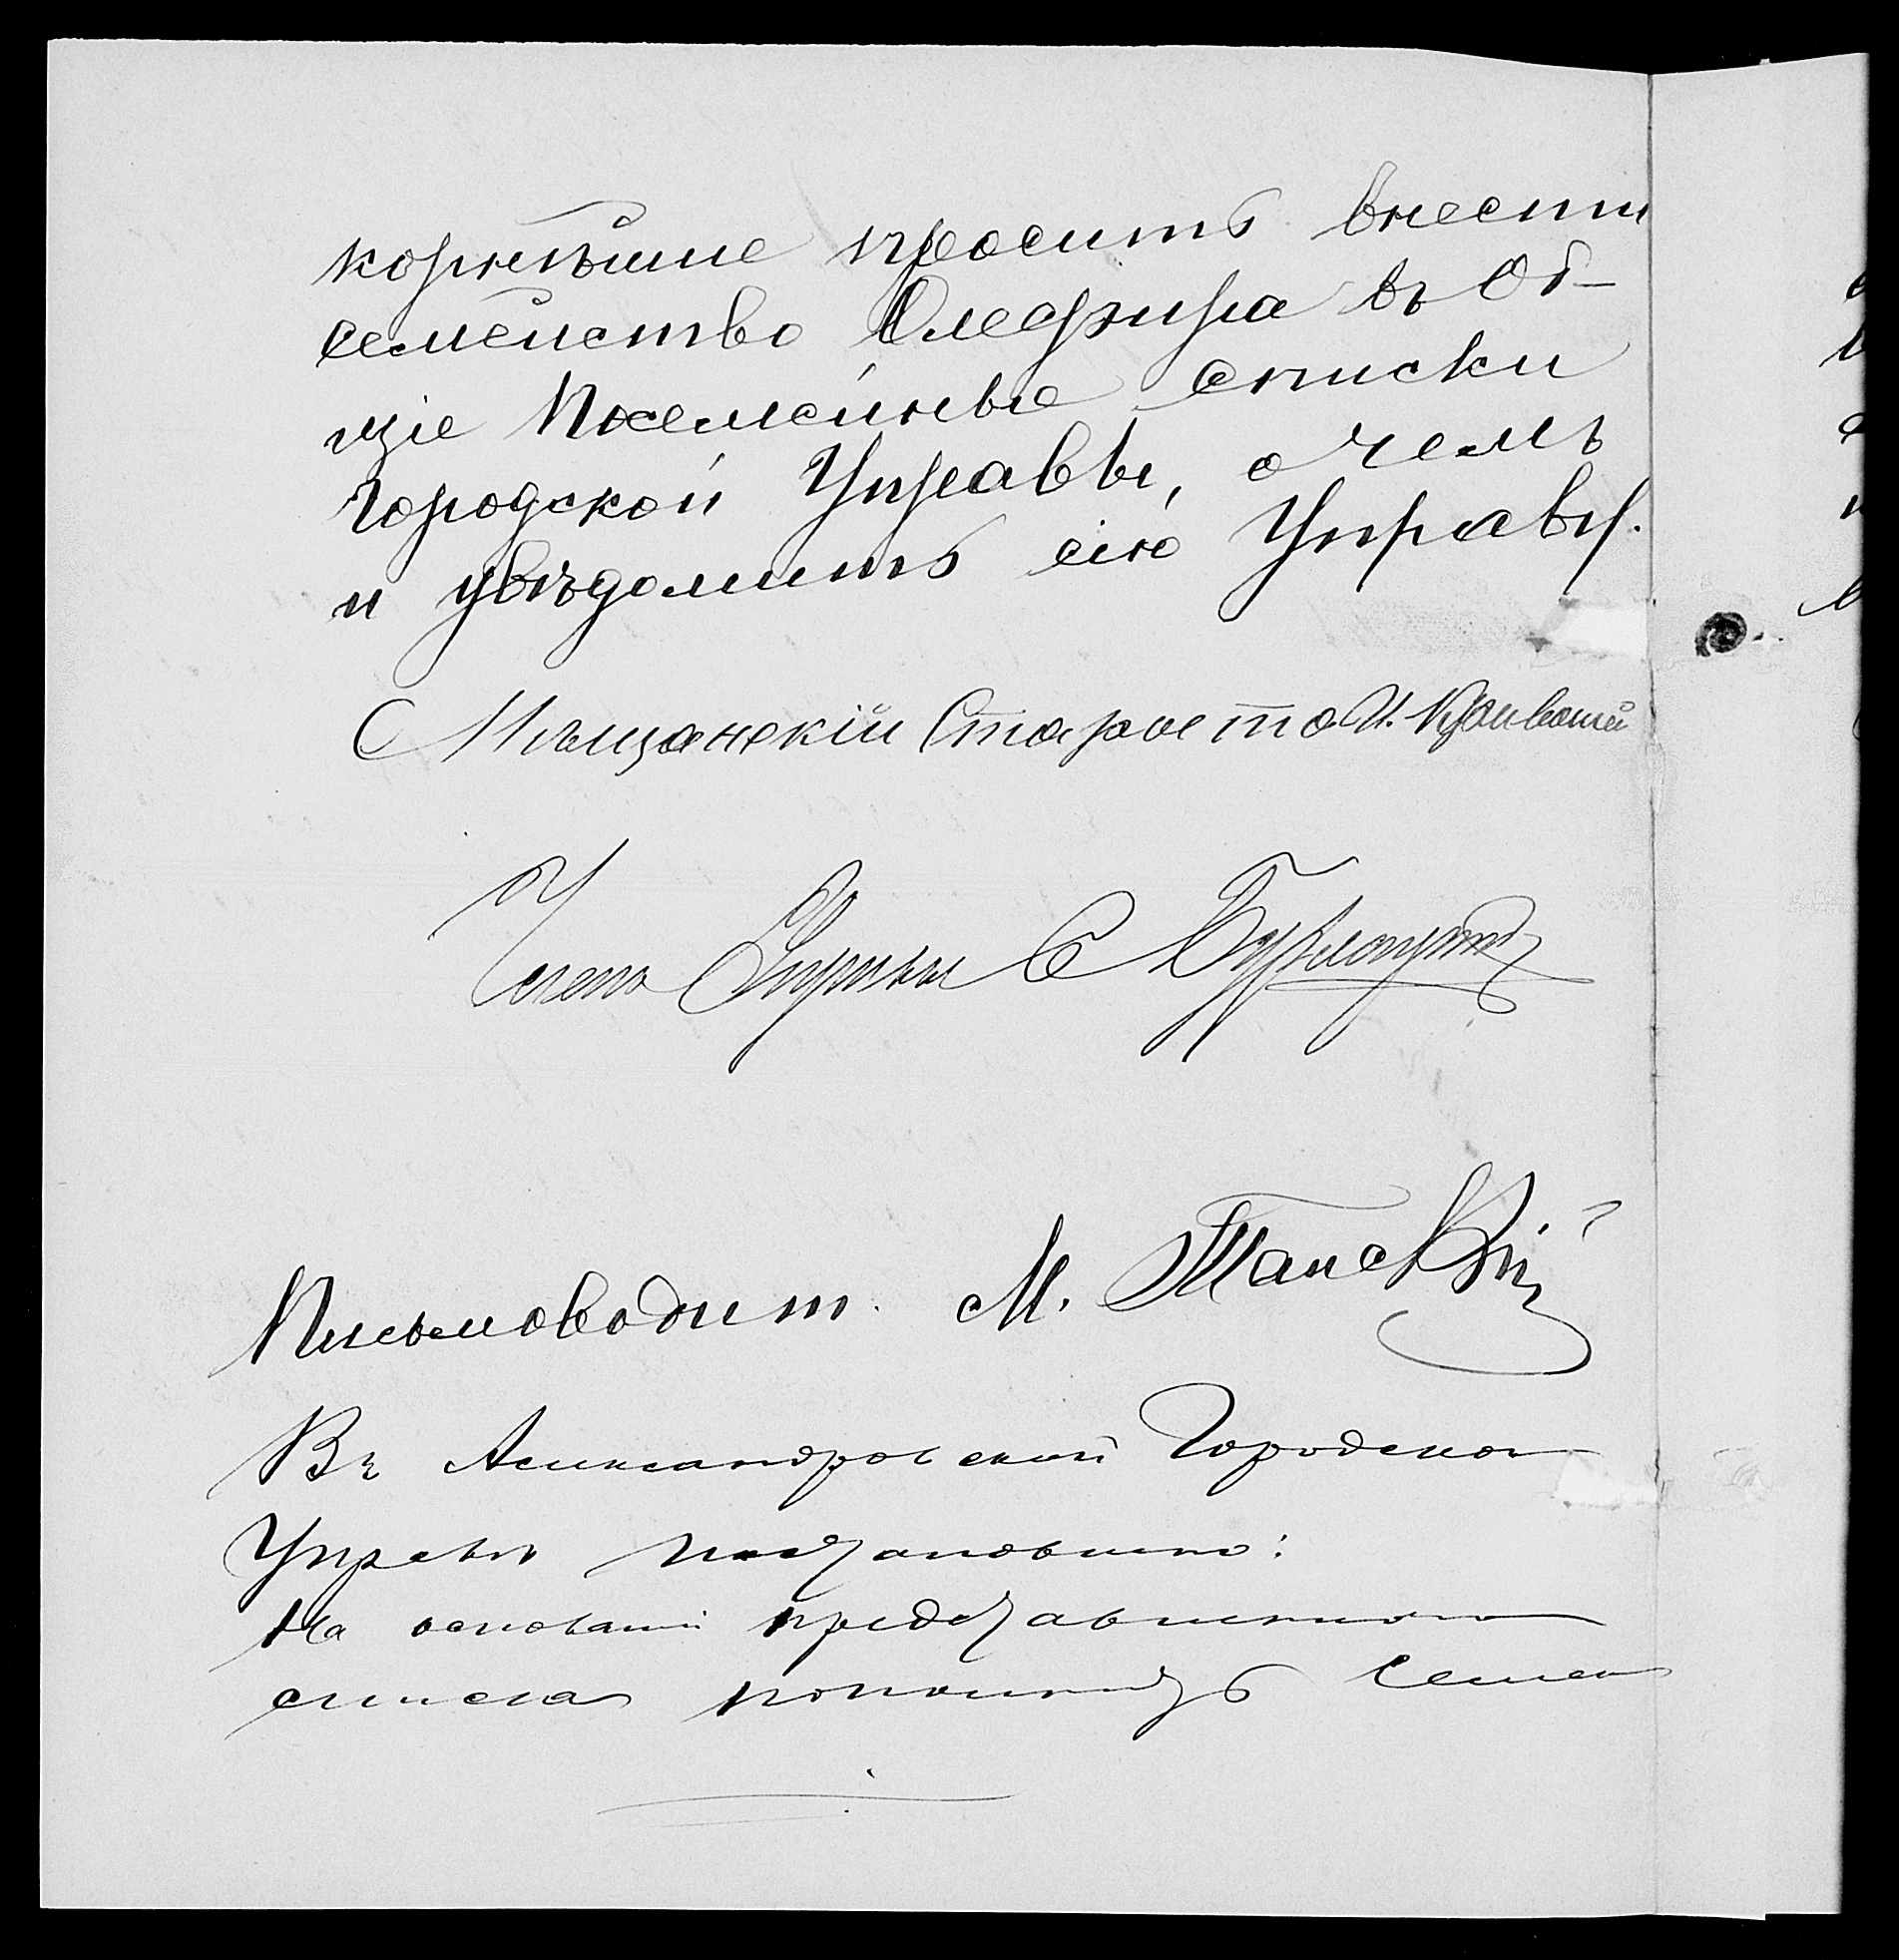 корнѣйше проситъ внести
семейство Олефира въ Об-
щіе Посемейные списки
Городской Управы, о чемъ
и увѣдомить сію Управу.
Мѣщанскій Староста И.
Членъ Управы С
Письмоводит. М. Танскій
Въ Александровской Городской
Управѣ постановлено:
На основаніи представленнаго
списка пополнить Семей